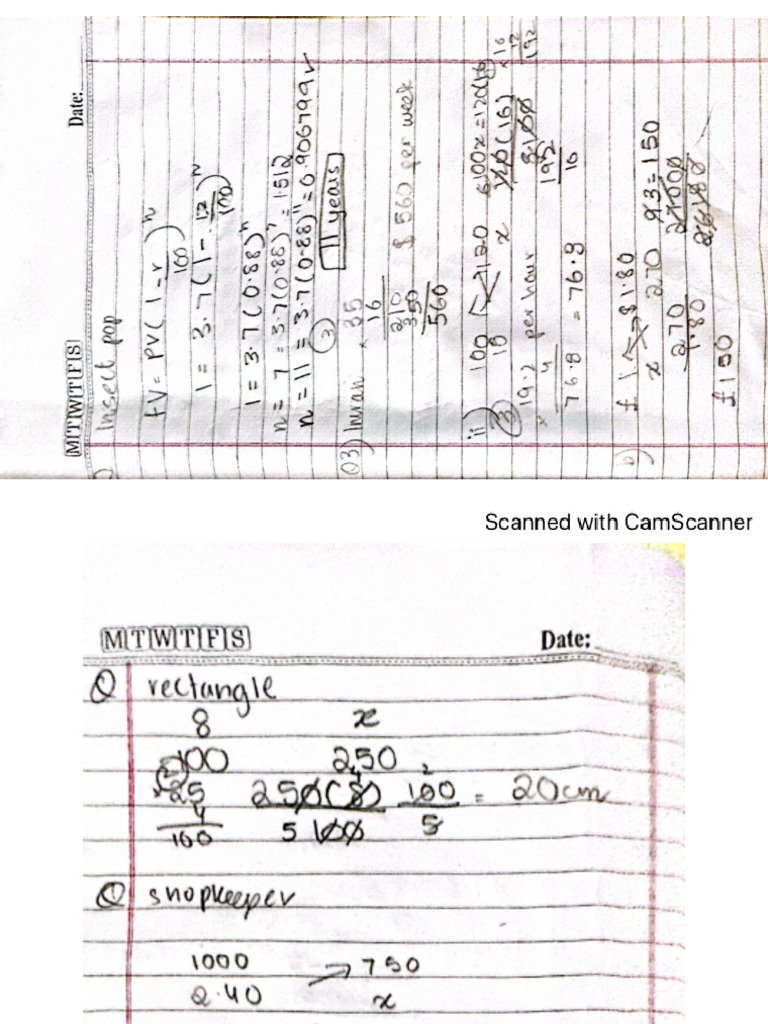 MTWTFS Date:
Insect pop
FV = PV ( 1 - r/100 )^n
1 = 3.7 ( 1 - 12/100 )^n
1 = 3.7 ( 0.88 )^n
n = 7 = 3.7 ( 0.88 )^7 = 1.512
n = 11 = 3.7 ( 0.88 )^11 = 0.906799
11 years
Q3)
35
16
210
350
560
$ 560 per week
ii)
100 120
16 x
100x = 120(16)
16
12
192
192
10
19.2 per hour
4
76.8 = 76.8
b)
£ 1 $1.80
x 270
270
1.80
27000
180
= 150
£150
Scanned with CamScanner
MTWTFS Date:
Q rectangle
8 x
100 250
25 250(8) 100 = 20cm
4 5 100 5
100
Q shopkeeper
1000 750
2.40 x